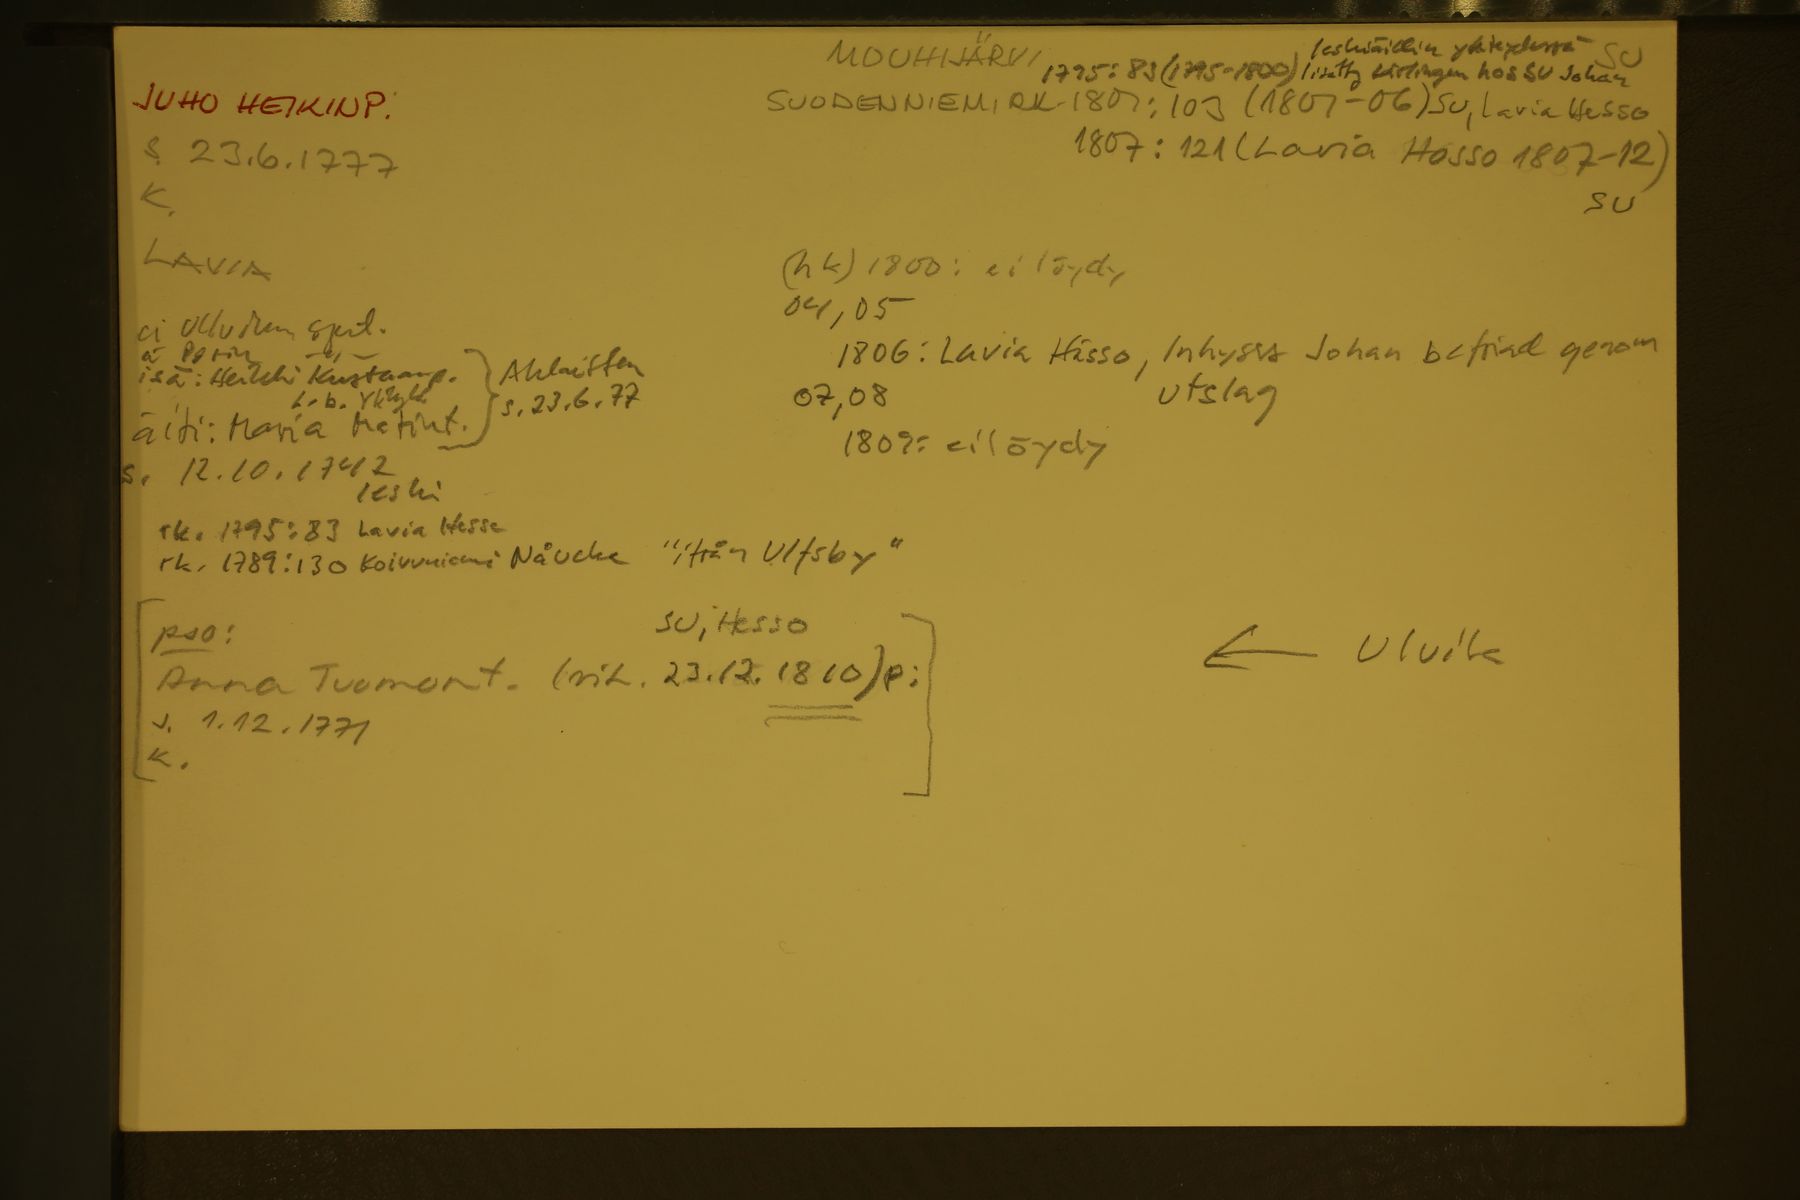 MOUHIJÄRVI
1795:83 (1795-1800) leskiäidin yhteydessä SU
lisätty kärlingen hos SU Johan
JUHO HEIKINP:
SUODENNIEMI RK 1801:103 (1801-06) SU, Lavia Hesso
s. 23.6.1777
1807:121 (Lavia Hosso 1807-12)
K.
SU
LAVIA
(hk) 1800: ei löydy
04,05
ei Ulvilan synt.
1806: Lavia Hässo, Inhyses Johan befriad genom
utslag
ei Porin
isä: Heikki Kustaanp.
Ahlaisten
s. 23.6.77
07,08
äiti: Maria Matint.
1809: ei löydy
s. 12.10.1742
leski
rk. 1795:83 Lavia Hesse
rk. 1789:130 Koivuniemi "ifrån Ulfsby"
pso:
SU, Hesso
← Ulvila
Anna Tuomont. (vih. 23.12.1810) p:
s. 1.12.1771
K.